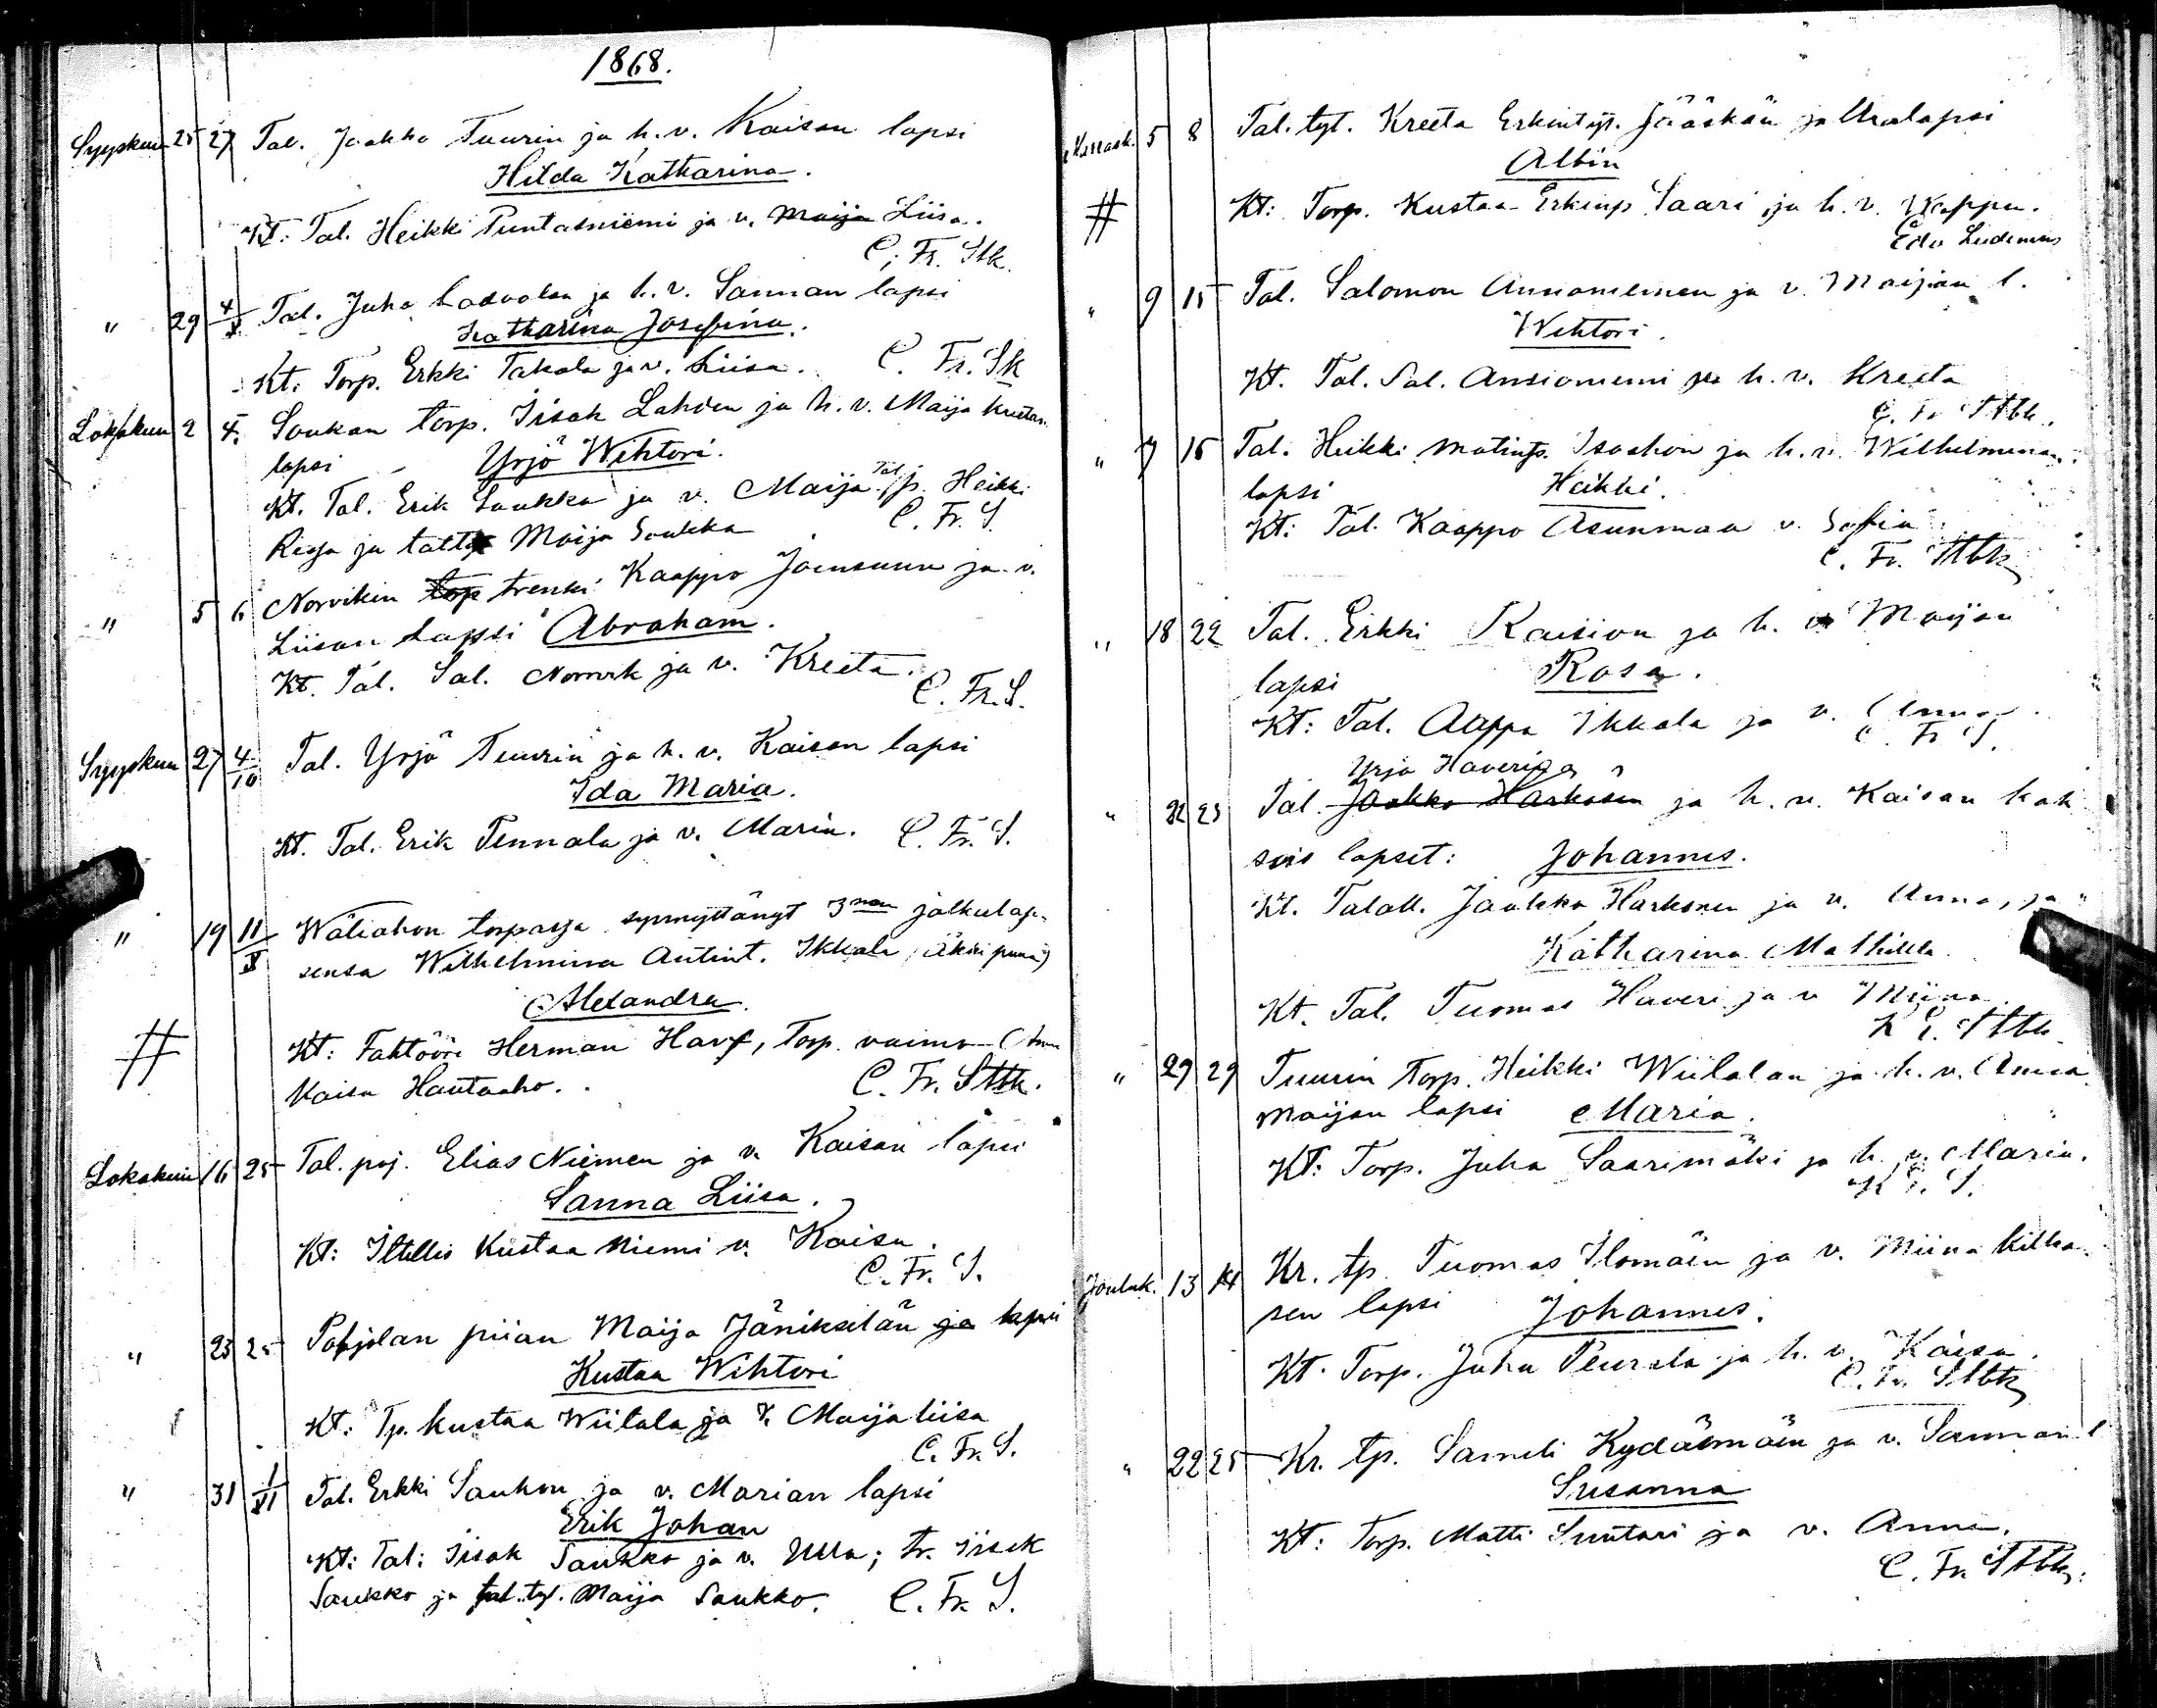 1868.
Syyskuu 25 27 Tal. Jaakko Tuurin ja h.v. Kaisan lapsi
Hilda Katharina.
Kt. Tal. Heikki Puntasniemi ja v. Maija Liisa.
C. Fr. Stk.
" 29 4/X Tal. Juho Ladvalan ja h.v. Sannan lapsi
Katharina Josefina.
Kt. Torp. Erkki Takala ja v. Liisa. C. Fr. Sk
Lokakuu 2 4. Soukan torp. Iisak Lahden ja h.v. Maija Kreetan
lapsi Yrjö Wihtori.
Kt. Tal. Erik Soukka ja v. Maija, Tal. p. Heikki
ja Maija Soukka C. Fr. S.
" 5 6 Norvikin top trenki Kaappo Joensuun ja v.
Liisan lapsi Abraham.
Kt. Tal. Sal. Norvik ja v. Kreeta.
C. Fr. S.
Syyskuu 27 4/10 Tal. Yrjö Tuurin ja h.v. Kaisan lapsi
Ida Maria.
Kt. Tal. Erik Pennala ja v. Maria. C. Fr. S.
" 19 11/X Wäliahon torpassa synnyttänyt 3nen jalkalap-
sensa Wilhelmina Antint. Ikkala
Alexandra.
# Kt: Faktööri Herman Harf, Torp. vaimo Anna
Kaisa Hautaaho. C. Fr. Sttk.
Lokakuu 16 25 Tal. poj. Elias Niemen ja v. Kaisan lapsi
Sanna Liisa.
Kt: Itellis Kustaa Niemi v. Kaisa.
C. Fr. S.
" 23 25 Pohjolan piian Maija Jänikselän ja lapsi
Kustaa Wihtori
Kt: Tp. Kustaa Wiitala ja v. Maija Liisa
C. Fr. S.
" 31 1/XI Tal. Erkki Saukon ja v. Marian lapsi
Erik Johan
Kt: Tal: Iisak Saukko ja v. Ulla; tr. Iisak
Saukko ja tal. tyt. Maija Saukko. C. Fr. S.
Marrask. 5 8 Tal. tyt. Kreeta Erkintyt. Jääskän ja lapsi
Albin
# Kt: Torp. Kustaa Erkinp. Saari ja h.v. Wappu.
Edv
" 9 15 Tal. Salomon Ansioniemen ja v. Maijan l.
Wihtori.
Kt. Tal. Sal. Ansioniemi ja h.v. Kreeta
C. Fr Sttk.
" 7 15 Tal. Heikki Matinp. Isoahon ja h.v. Wilhelminan
lapsi Heikki.
Kt: Tal. Kaappo Asunmaa v. Sofia
C. Fr. Sttk
" 18 22 Tal. Erkki Raision ja h. v. Maijan
lapsi Rosa.
Kt: Tal. Aappo Ikkala ja v. Anna.
C. Fr S.
Yrjö Haverin
" 22 23 Tal. Jaakko Harkosen ja h.v. Kaisan kak
sois lapset: Johannes.
Kt. Talall. Jaakko Harkonen ja v. Anna, ja
Katharina Mathilda
Kt. Tal. Tuomas Haveri ja v Miina.
K E. Sttk
" 29 29 Tuurin torp. Heikki Wiilalan ja h.v. Anna
Maijan lapsi Maria.
Kt: Torp. Juha Saarimäki ja h.v. Maria.
K E. S.
Jouluk. 13 14 Kr. tp. Tuomas Ilomäen ja v. Miina
sen lapsi Johannes.
Kt. Torp. Juha Peurala ja h.v. Kaisa.
C. Fr. Sttk
" 22 25 Kr. tp. Sameli Kydäsmäen ja v. Sannan l
Susanna
Kt: Torp. Matti Suutari ja v. Anna.
C. Fr. Sttk.